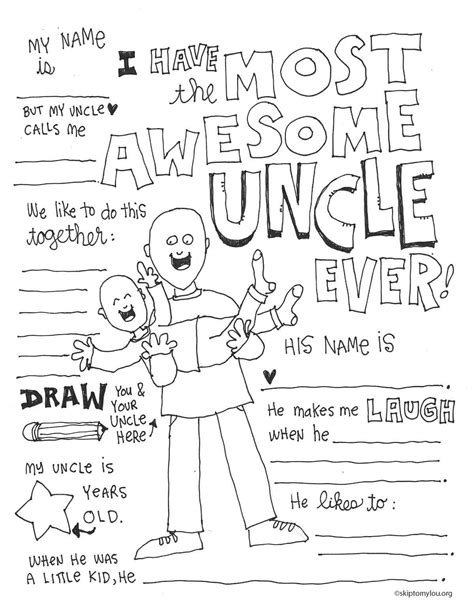 MY NAME
is
BUT MY UNCLE♥
CALLS ME
I HAVE
the MOST
AWESOME
UNCLE
EVER!
We like to do this
together:
HIS NAME iS
♥ .
DRAW YOU &
YOUR
UNCLE
HERE
He makes me LAUGH
WHEN he
MY UNCLE iS
YEARS
OLD.
He likes to:
WHEN HE WAS
A LITTLE KID, HE
©skiptomylou.org